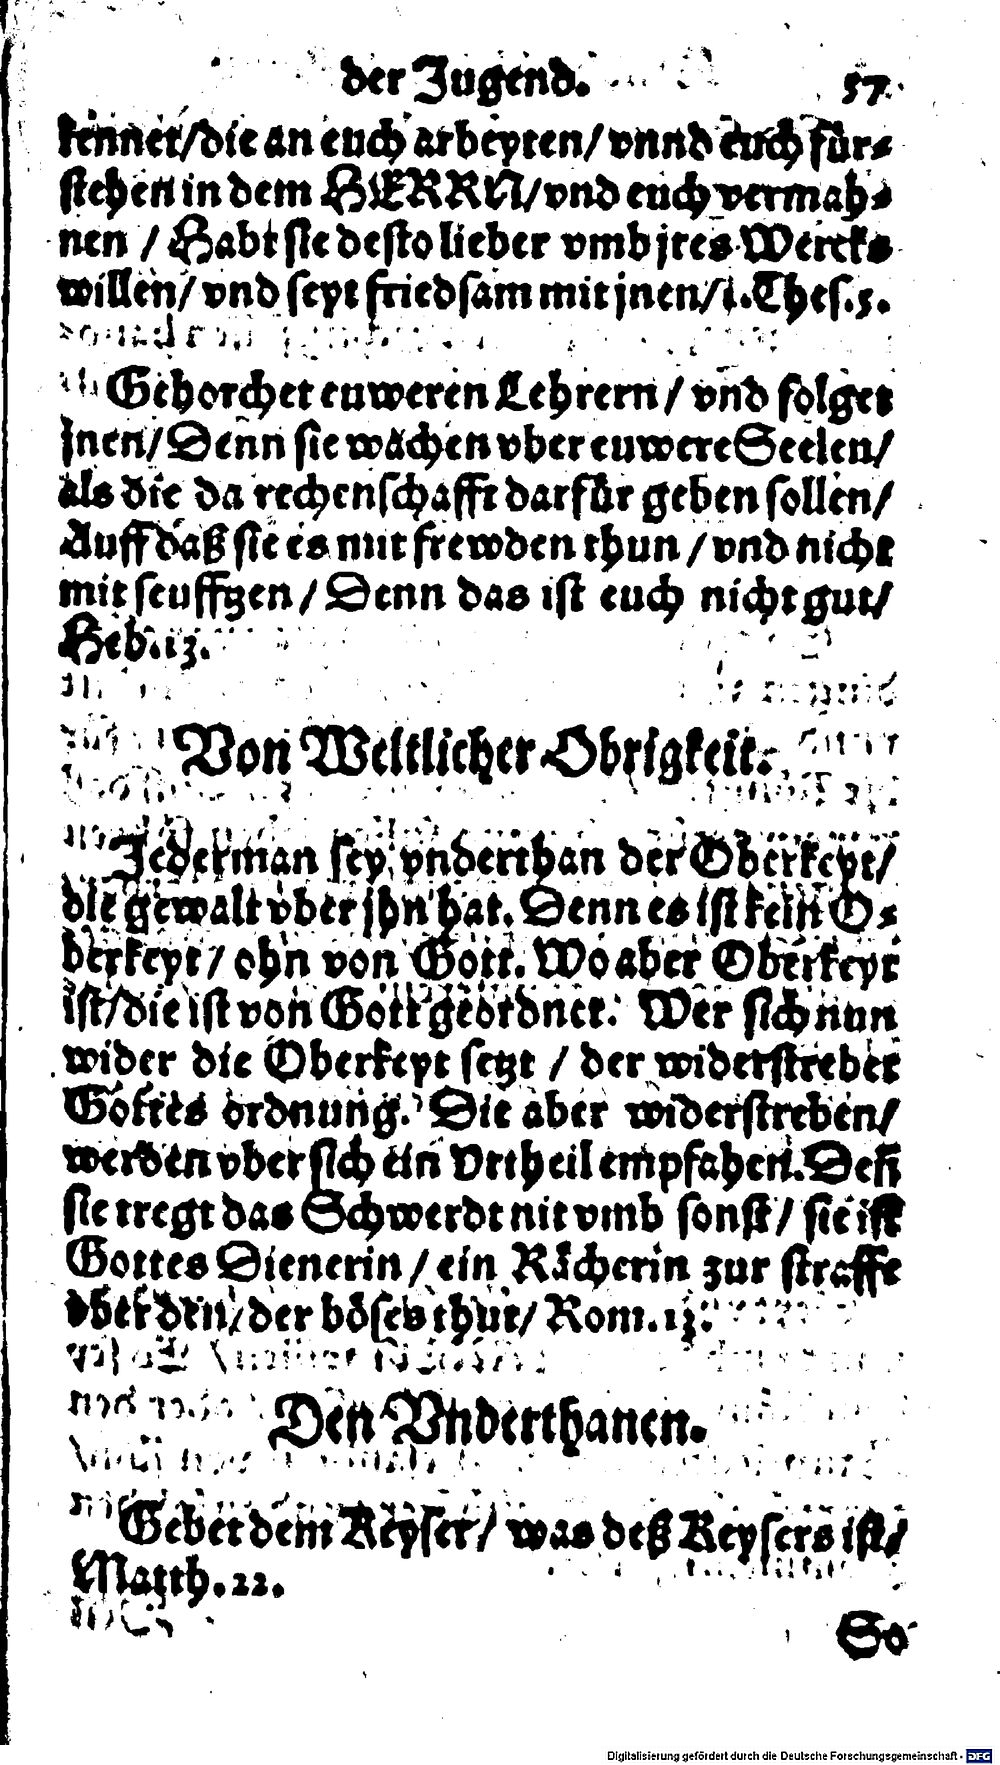 der Jugend. 57
kennet/die an euch arbeyten/ vnnd euch für⸗
stehen in dem HERRN/vnd euch vermah⸗
nen / Habt sie desto lieber vmb jres Wercks
willen/ vnd seyt friedsam mit jnen/1.Thes.5.
Gehorchet euweren Lehrern / vnd folget
jnen/ Denn sie wachen vber euwere Seelen/
als die da rechenschafft darfür geben sollen/
Auff daß sie es mit frewden thun / vnd nicht
mit seufftzen / Denn das ist euch nicht gut/
Heb. 13.
Von Weltlicher Obrigkeit.
Jederman sey vnderthan der Oberkeyt/
die gewalt vber jhn hat. Denn es ist kein O⸗
berkeyt / ohn von Gott. Wo aber Oberkeyt
ist/die ist von Gott geordnet. Wer sich nun
wider die Oberkeyt setzt / der widerstrebet
Gottes ordnung. Die aber widerstreben/
werden vber sich ein Vrtheil empfahen. Deñ
sie tregt das Schwerdt nit vmb sonst / sie ist
Gottes Dienerin / ein Rächerin zur straffe
vber den/der böses thut/ Rom. 13.
Den Vnderthanen.
Gebet dem Keyser/ was deß Keysers ist/
Matth. 22.
So
Digitalisierung gefördert durch die Deutsche Forschungsgemeinschaft - DFG